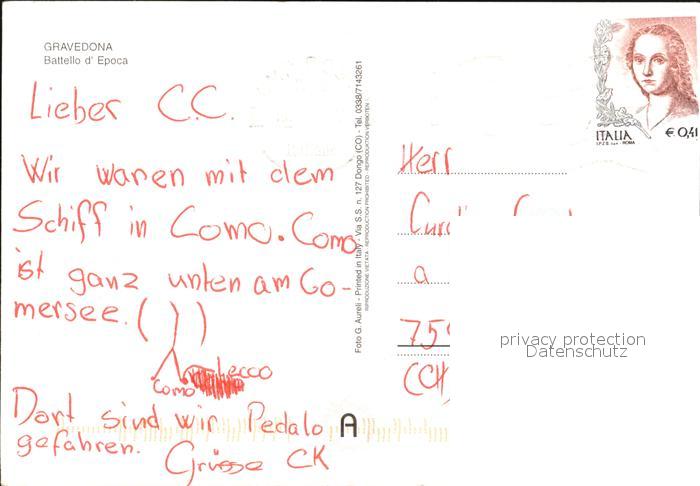 GRAVEDONA
Battello d' Epoca
Lieber C.C.
Wir waren mit dem
Schiff in Como. Como
ist ganz unten am Co-
mersee. ( )
Como Lecco
Dort sind wir Pedalo
gefahren.
Grüsse CK
Foto G. Aureli - Printed in Italy - Via S.S. n. 127 Dongo (CO) - Tel. 0338/7143261
RIPRODUZIONE VIETATA - REPRODUCTION PROHIBITED - REPRODUKTION VERBOTEN
A
ITALIA
€ 0,41
I.P.Z.S. S.p.A. - ROMA
Herr
a
75
(CH
privacy protection
Datenschutz